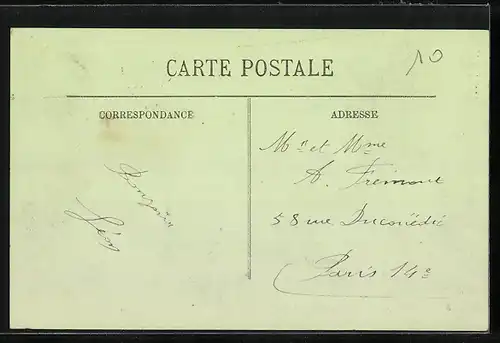 10
CARTE POSTALE
CORRESPONDANCE
ADRESSE
Mr et Mme
A. Frémont
58 rue Ducouëdic
Paris 14e
Bonjour
Léon